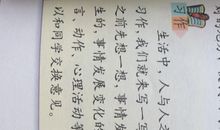 习作
生活中，人与人之
习作，我们就来写一写
之前先想一想，事情发
生的，事情发展变化的
言、动作、心理活动等
以和同学交换意见。